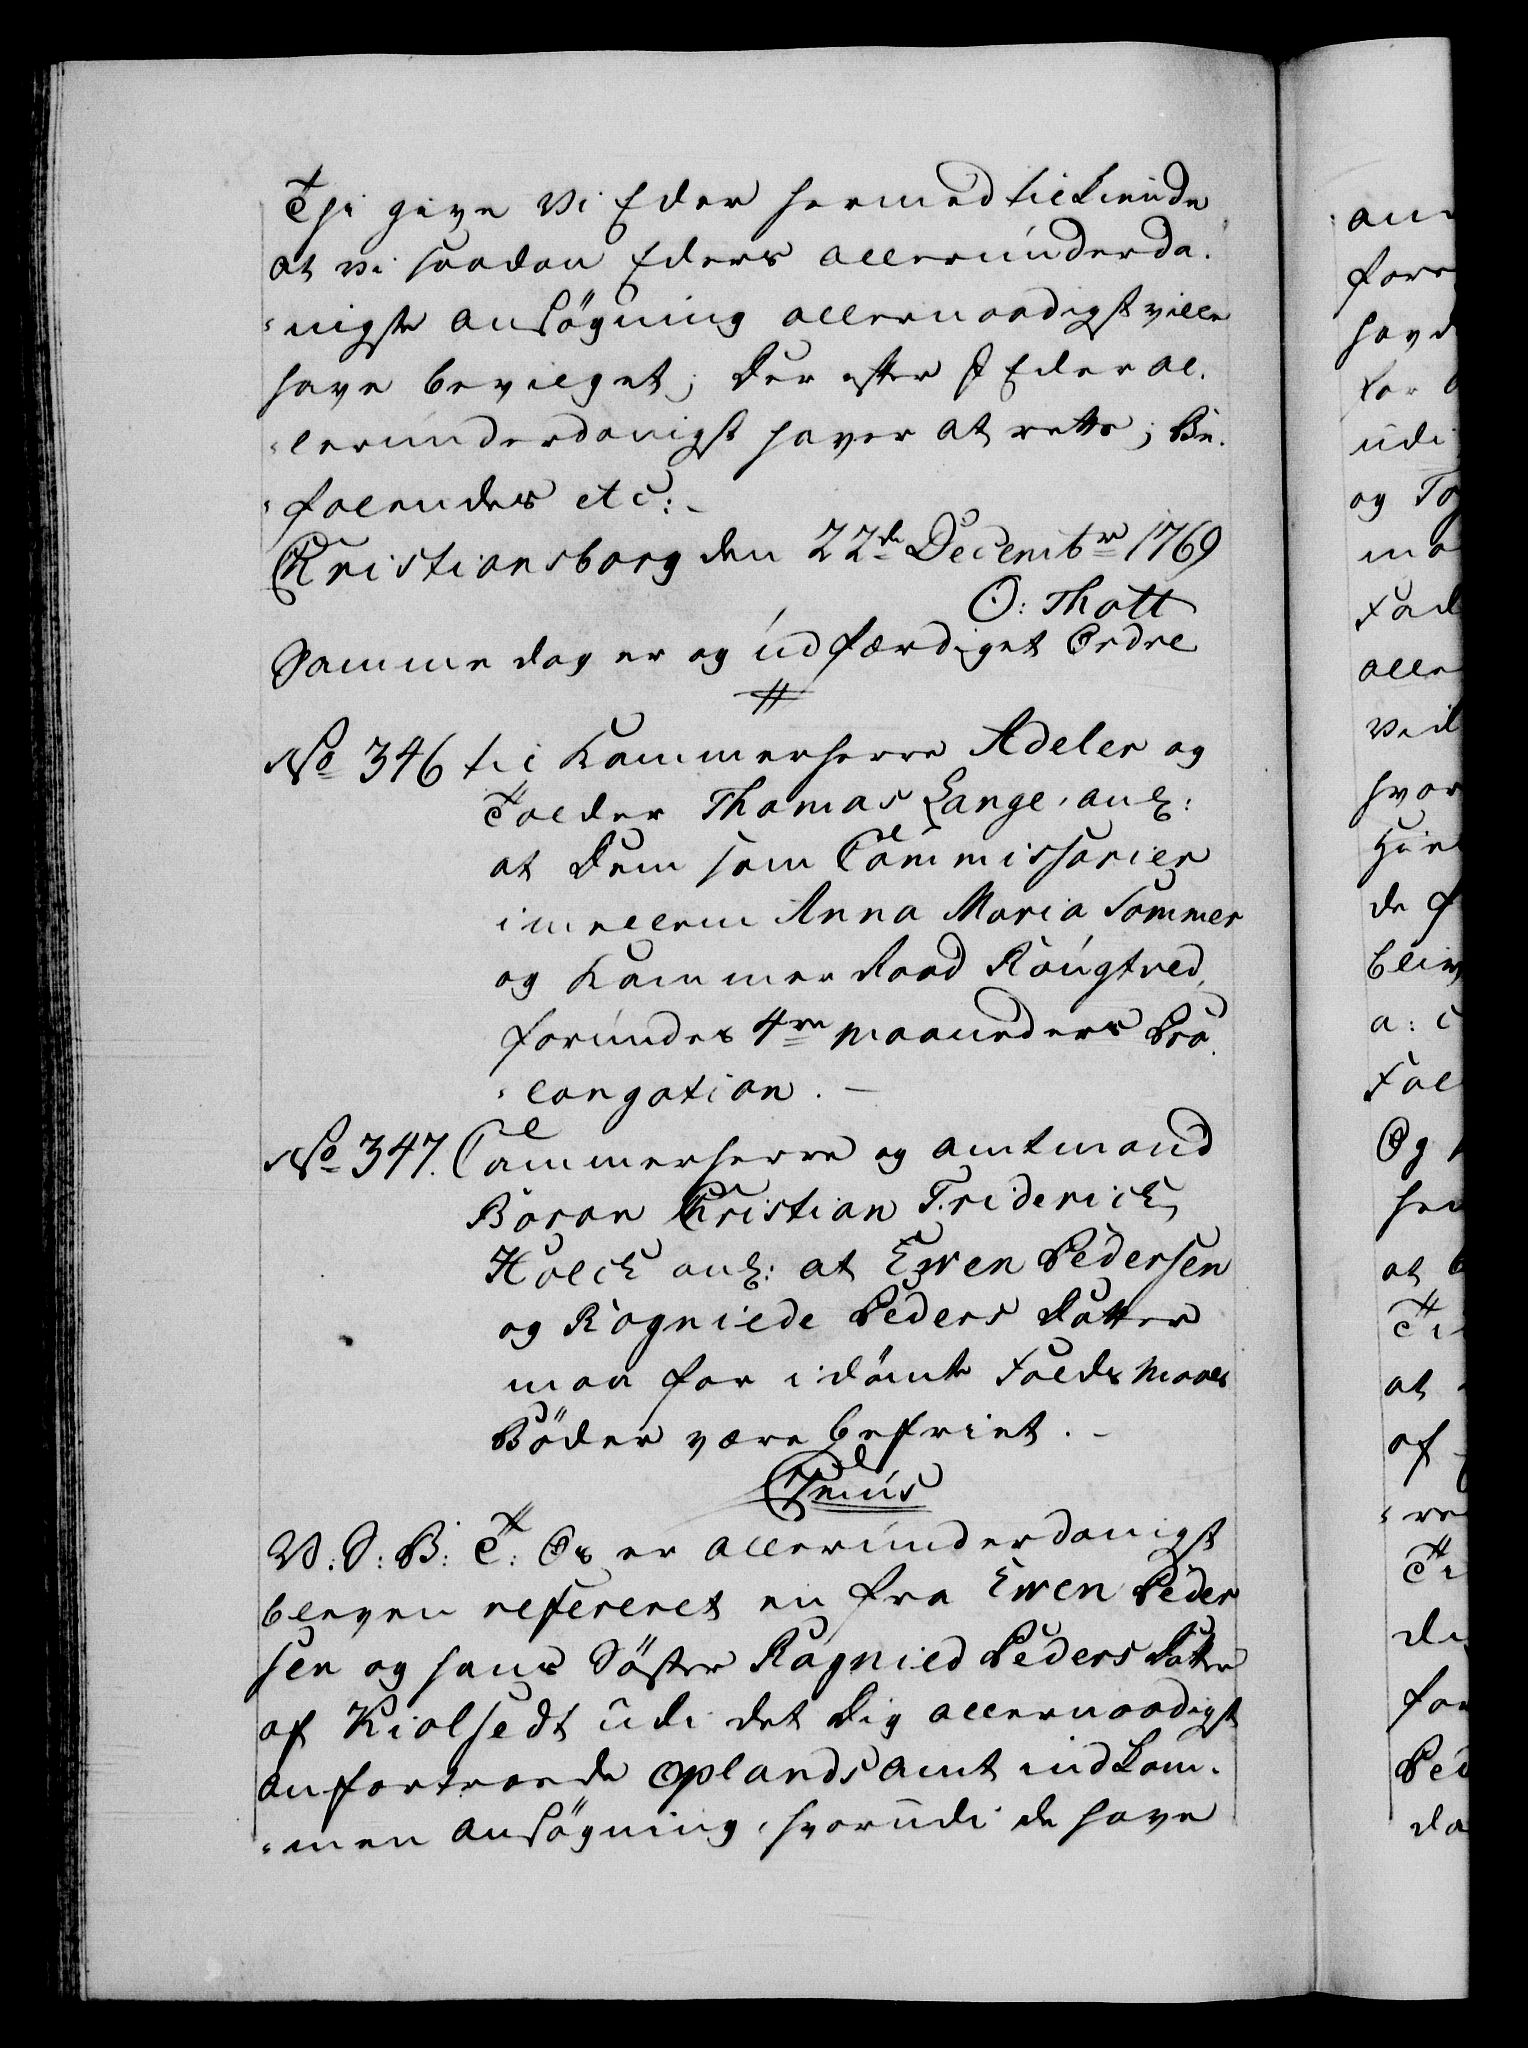 Thi give Vi Eder hermed tilkiende
at Vi saadan Eders allerunderda-
-nigste ansögning allernaadigst ville
have bevilget; Der efter I Eder al-
-lerunderdanigst haver at rette; Be-
-falendes etc:
Christiansborg den 22de Decembr 1769
O: Thott
Samme dag er og udfærdiget Ordre
No 346 til Kammerherre Adeler og
Tolder Thomas Lange, anl:
at Dem som Commissarier
imellem Anna Maria Sommer
og Kammer Raad Rougtved,
forundes 4re maaneders Pro-
-longation. –
No 347. Cammerherre og amtmand
Baron Christian Friderich
Holck anl: at Ewen Pedersen
og Rogniede Peders Datter
maa for idömte Leiermaals
Böder være befriet. –
Cremus
V. S: B: T: Os er allerunderdanigst
bleven refereret en fra Ewen Peder
sen og hans Söster Rognied Peders Datter
af Kiolsedt udi det Dig allernaadigst
anfortroede Oplands amt indkom-
-men ansögning, hvorudi de have